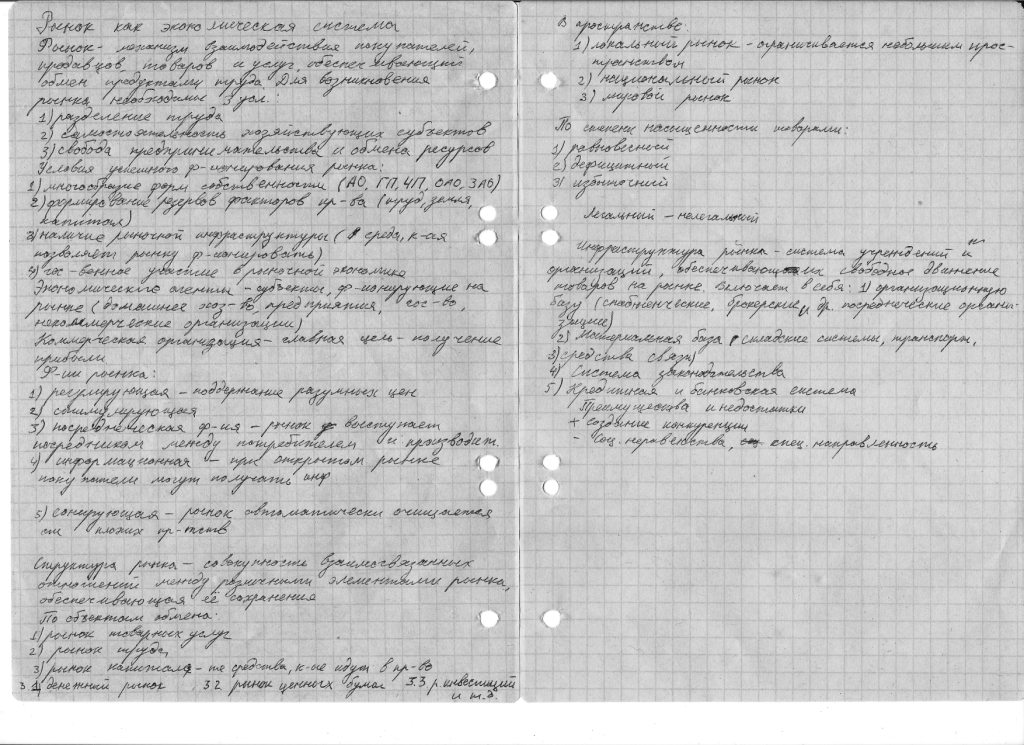 Рынок как экономическая система
Рынок - механизм взаимодействия покупателей,
продавцов товаров и услуг, обеспечивающий
обмен продуктами труда Для возникновения
рынка необходимы 3 усл.:
1) разделение труда
2) самостоятельность хозяйствующих субъектов
3) свобода предпринимательства и обмена ресурсов
Условия успешного ф-ионирования рынка:
1) многообразие форм собственности (АО, ГП, ЧП, ОАО, ЗАО)
2) формирование резервов факторов пр-ва (труд, земля,
капитал)
3) наличие рыночной инфраструктуры (среда, к-ая
позволяет рынку ф-ионировать)
4) гос-венное участие в рыночной экономике
Экономические агенты - субъекты, ф-ионирующие на
рынке (домашнее хоз-во, предприятия, гос-во,
некоммерческие организации)
Коммерческая организация - главная цель - получение
прибыли
Ф-ии рынка:
1) регулирующая - поддержание разумных цен
2) стимулирующая
3) посредническая ф-ия - рынок выступает
посредником между потребителем и производит.
4) информационная - при открытом рынке
покупатели могут получать инф
5) санирующая - рынок автоматически очищается
от плохих пр-тств
Структура рынка - совокупность взаимосвязанных
отношений между различными элементами рынка,
обеспечивающая её сохранения
По объектам обмена:
1) рынок товарных услуг
2) рынок труда
3) рынок капитала - те средства, к-ие идут в пр-во
3.1) денежный рынок 3.2 рынок ценных бумаг 3.3 р. инвестиций
и т.д.
В пространстве:
1) локальный рынок - ограничивается небольшим прос-
транством
2) национальный рынок
3) мировой рынок
По степени насыщенности товарами:
1) равновесный
2) дефицитный
3) избыточный
Легальный - нелегальный
Инфраструктура рынка - система учреждений и
организаций, обеспечивающих свободное движение
товаров на рынке. Включает в себя: 1) организационную
базу (снабженческие, брокерские, и др. посреднические органи-
зации)
2) Материальная база складские системы, транспорт,
3) средства связи)
4) Система законодательства
5) Кредитная и банковская система
Преимущества и недостатки
+ создание конкуренции
- Соц. неравенства, спец. направленность